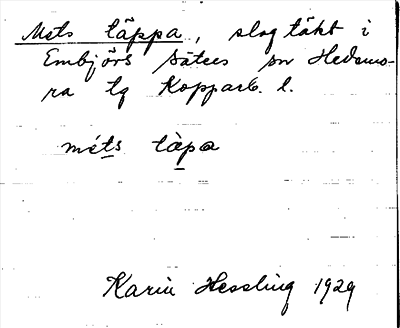 Mats täppa, slogtäkt i
Embjörs Säters sn Hedemo-
ra tg Kopparb. l.
méts tàpa
Karin Hessling 1929